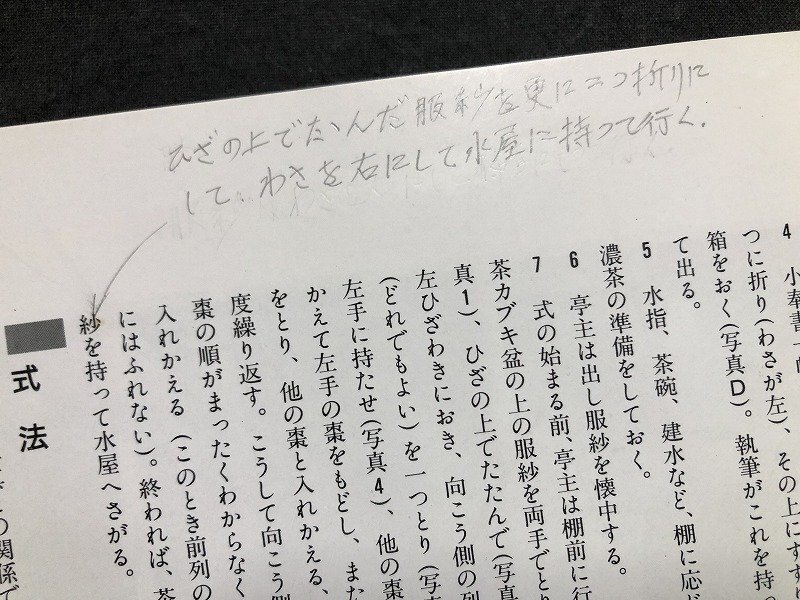 ひざの上でたゝんだ服紗を更に二つ折りに
して、わさを右にして水屋に持つて行く.
4 小奉書一
つに折り(わさが左)、その上にすずり
箱をおく(写真D)。執筆がこれを持っ
て出る。
5 水指、茶碗、建水など、棚に応じ
濃茶の準備をしておく。
6 亭主は出し服紗を懐中する。
7 式の始まる前、亭主は棚前に行
茶カブキ盆の上の服紗を両手でと
真1)、ひざの上でたたんで(写真
左ひざわきにおき、向こう側の列
(どれでもよい)を一つとり(写真
左手に持たせ(写真4)、他の棗
かえて左手の棗をもどし、また
をとり、他の棗と入れかえる、
度繰り返す。こうして向こう側
棗の順がまったくわからなく
入れかえる(このとき前列の
にはふれない)。終われば、茶
紗を持って水屋へさがる。
式法
の関係で